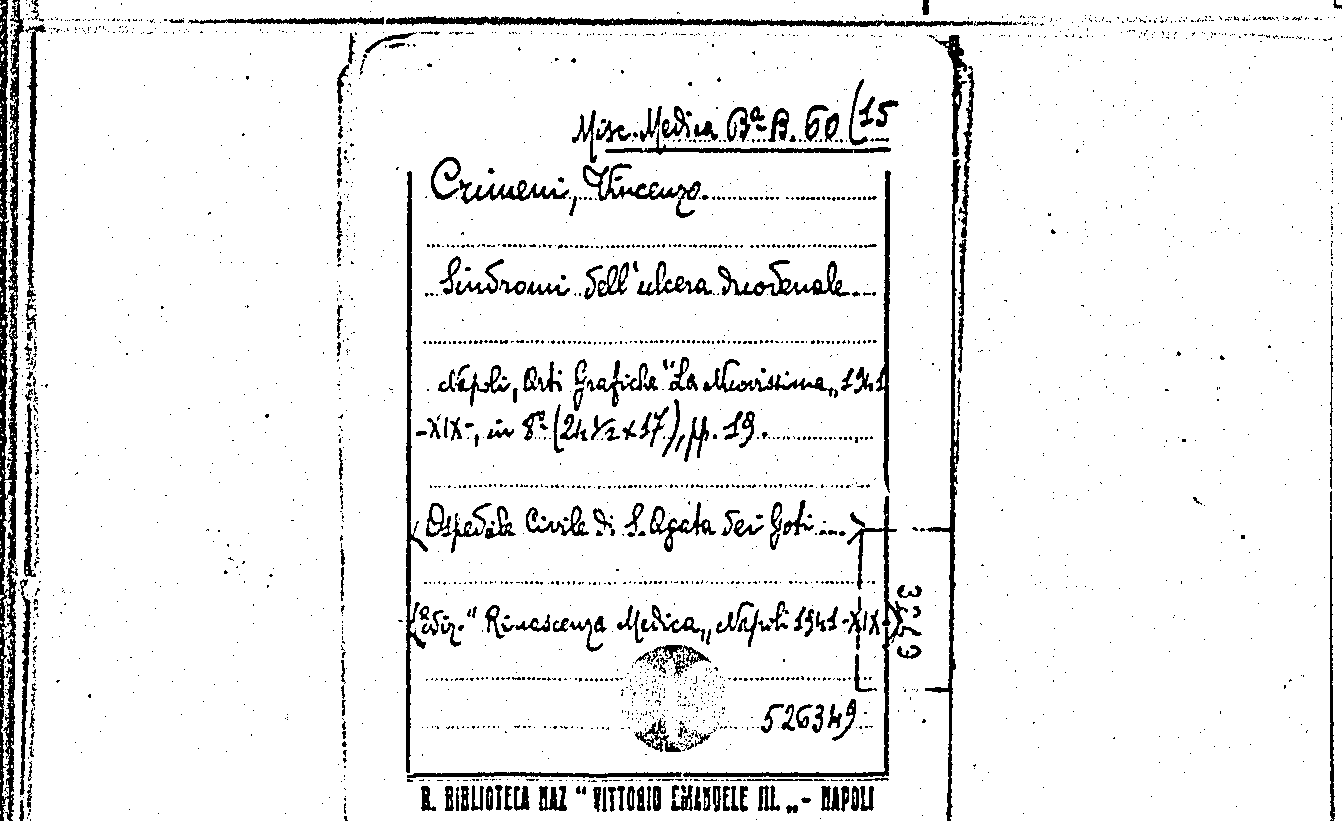 Misc. Medica Bª B. 60 (15
Crimeni, Vincenzo.
Sindromi dell'ulcera duodenale.
Napoli, Arti Grafiche "La Nuovissima„ 1941
-XIX-, in 8º (24½x17), pp. 19.
(Ospedale Civile di S. Agata dei Goti ... )
(Ediz. "Rinascenza Medica„ Napoli 1941-XIX-)
526349
R. BIBLIOTECA NAZ "VITTORIO EMANUELE III. „ - NAPOLI